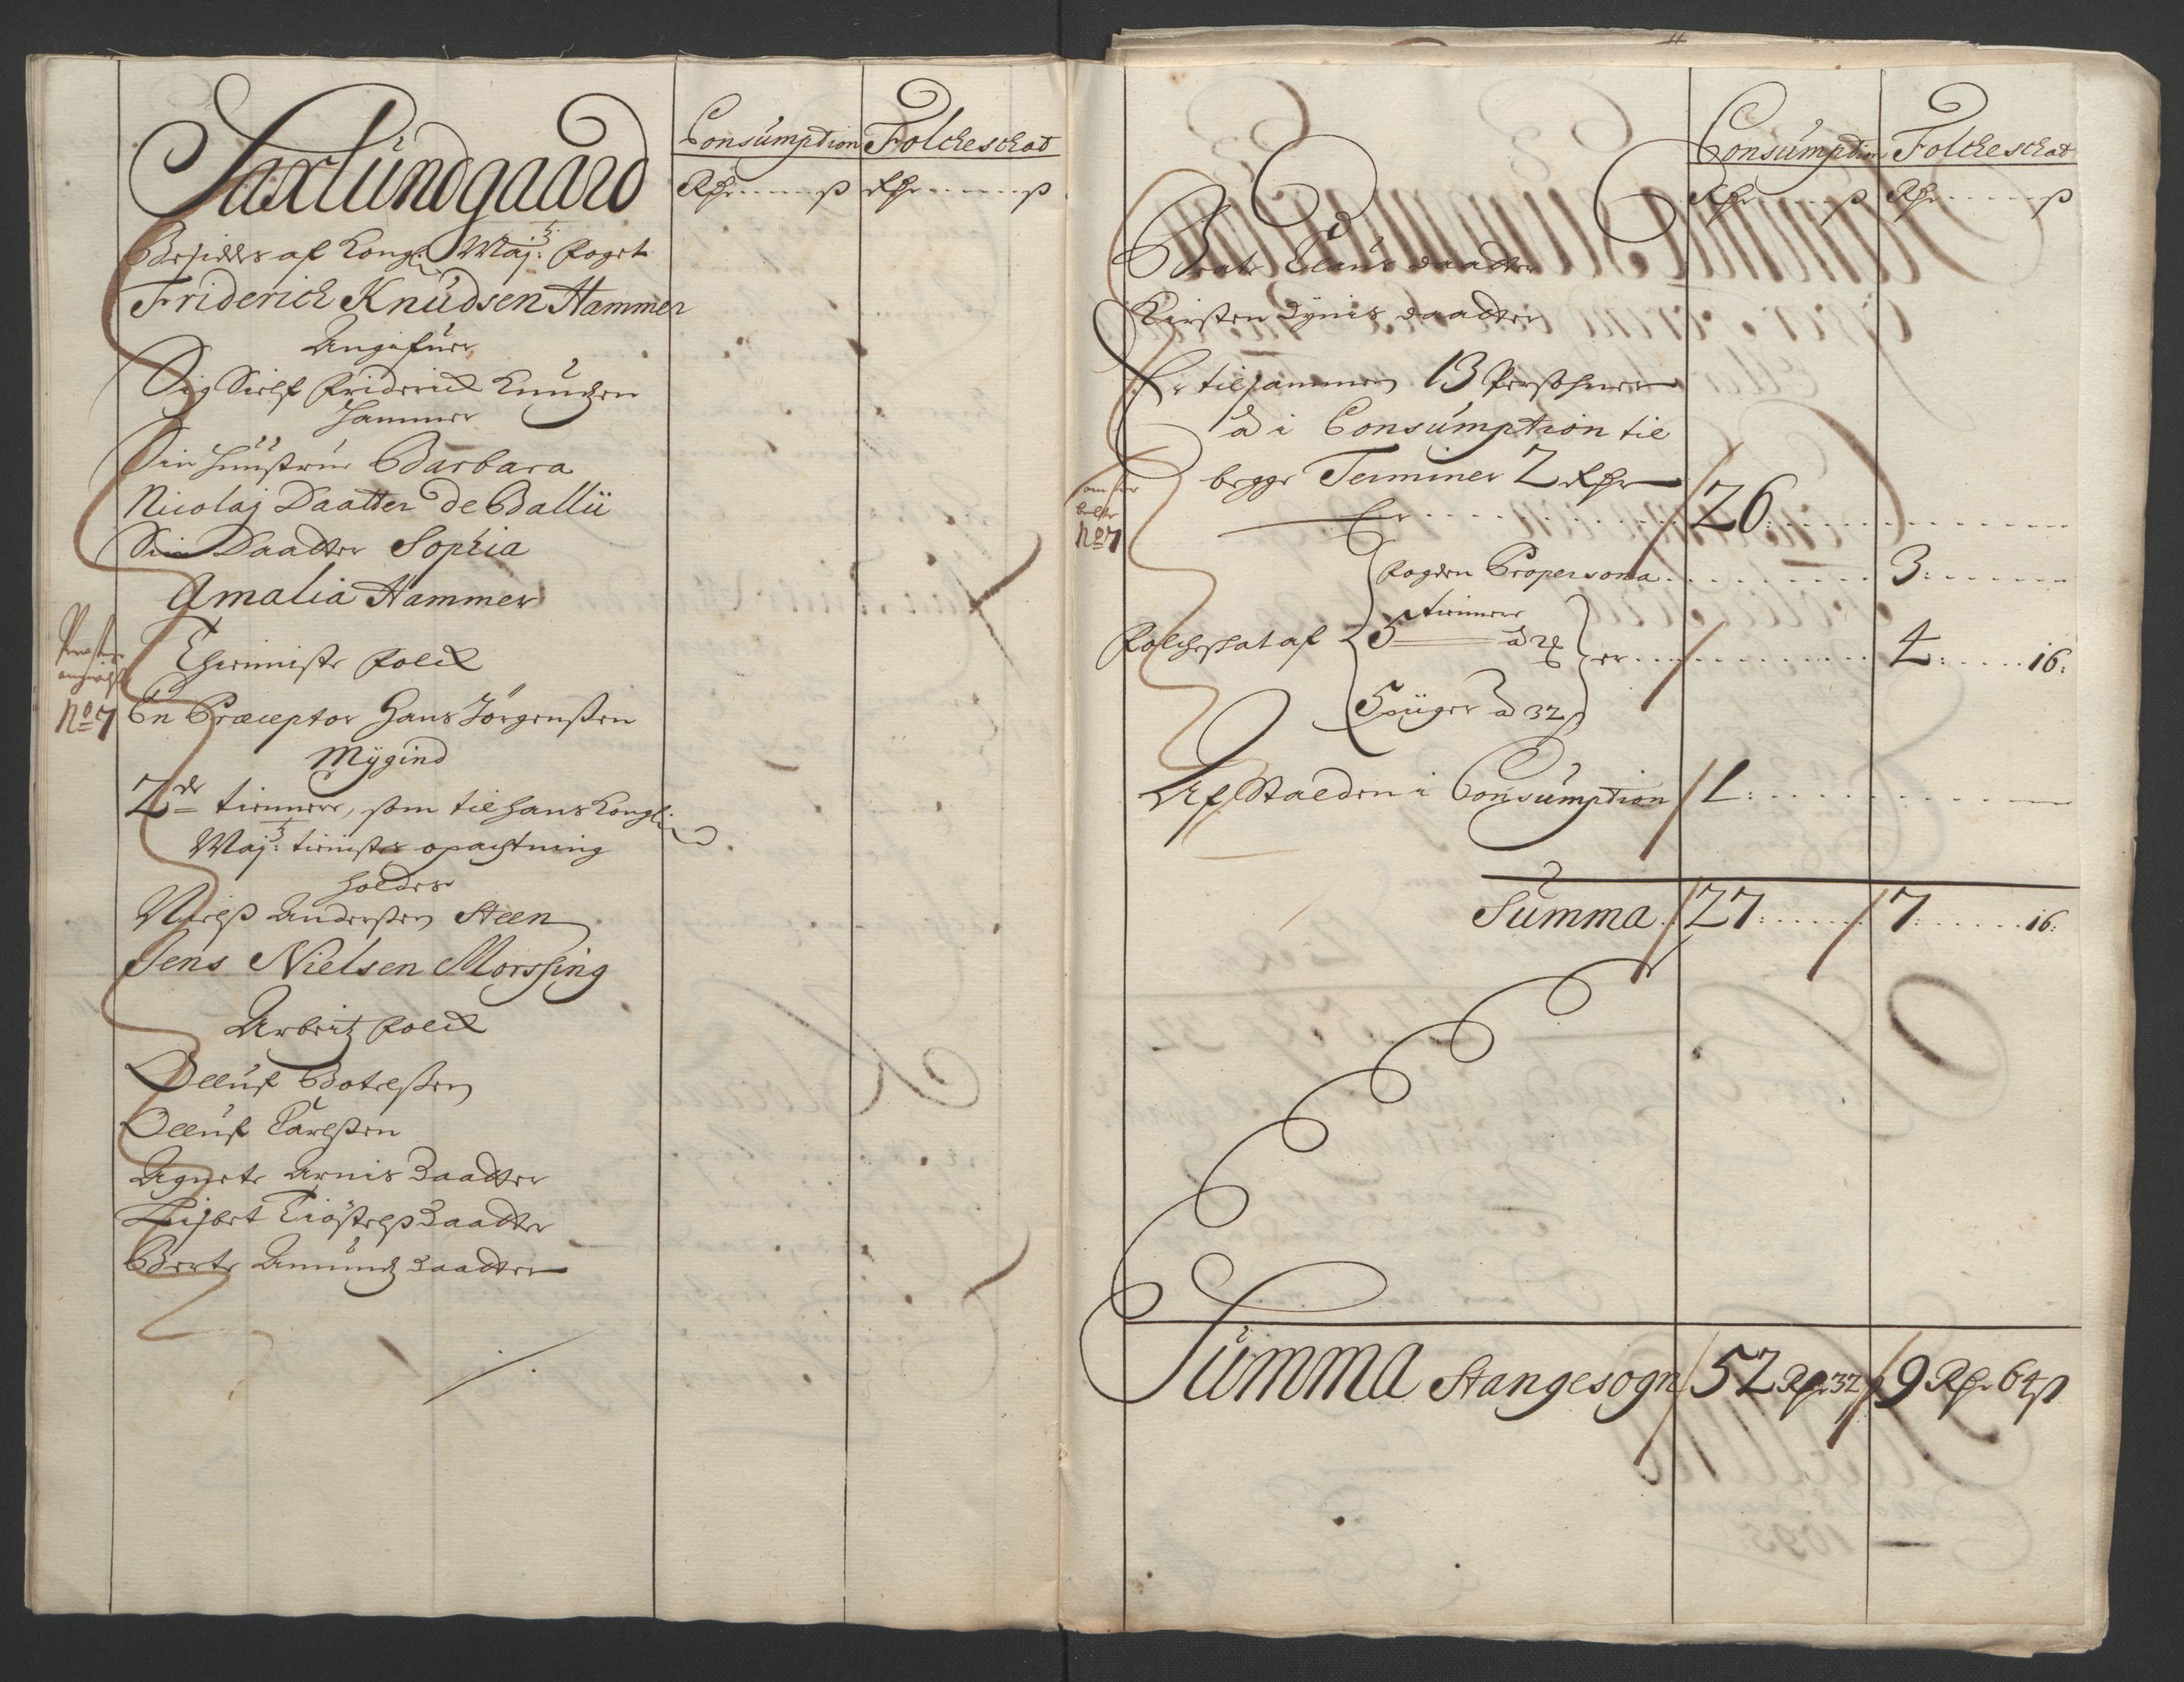 Saxlundgaard
Consumption Folcheschat
Rdr ß Rdr ß
Besiddes af Kongl: Maj:ts Foget
Friderich Knudsen Hammer
Angifuer
Sig Sielf Friderich Knudsen
Hammer
Sin Hüüstrue Barbara
Nicolaj Daatter De Ballü
Sin Daatter Sophia
Amalia Hammer
Thienniste Folck
No 7
En Præceptor Hans Jörgensen
Mygind
2de tiennere, som til Hans Kongl:
Maj:ts tienistes opachtning
holdes
Nielß Andersen Steen
Jens Nielsen Morssing
Arbeitz Folck
Olluf Botelßen
Olluf Carlßen
Agnete Arnis Daatter
Lisbet Kiöstelß Daatter
Berte Amundz Daatter
Consumption Folcheschat
Rdr ß Rdr ß
Claus Daatter
Kirsten Dynis Daatter
Er tilsammen 13 Persohner
à i Consumption til
begge Terminer 2 Rdr
Er 26:
No 7
Fogden Propersona 3:
Folcheschat af 5 tiennere er 4: 16:
5 piiger à 32 ß
Af Stalden i Consumption 1:
Summa 27: 7: 16:
Summa Stangesogn 52 Rdr 32 ß 9 Rdr 64 ß